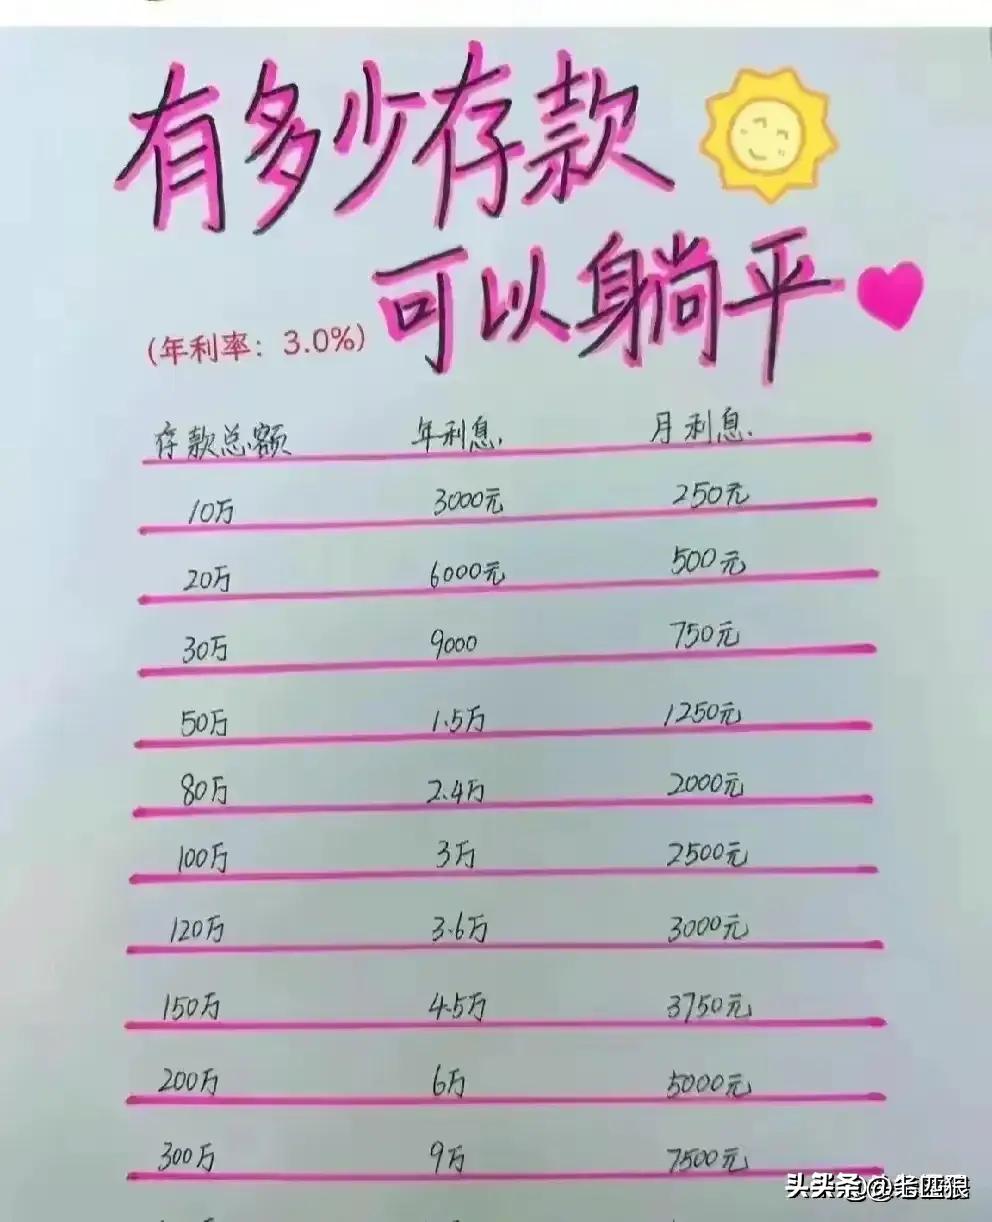 有多少存款
可以躺平
(年利率：3.0%)
存款总额 年利息. 月利息.
10万 3000元 250元
20万 6000元 500元
30万 9000 750元
50万 1.5万 1250元
80万 2.4万 2000元
100万 3万 2500元
120万 3.6万 3000元
150万 4.5万 3750元
200万 6万 5000元
300万 9万 7500元
头头条@老匹狠